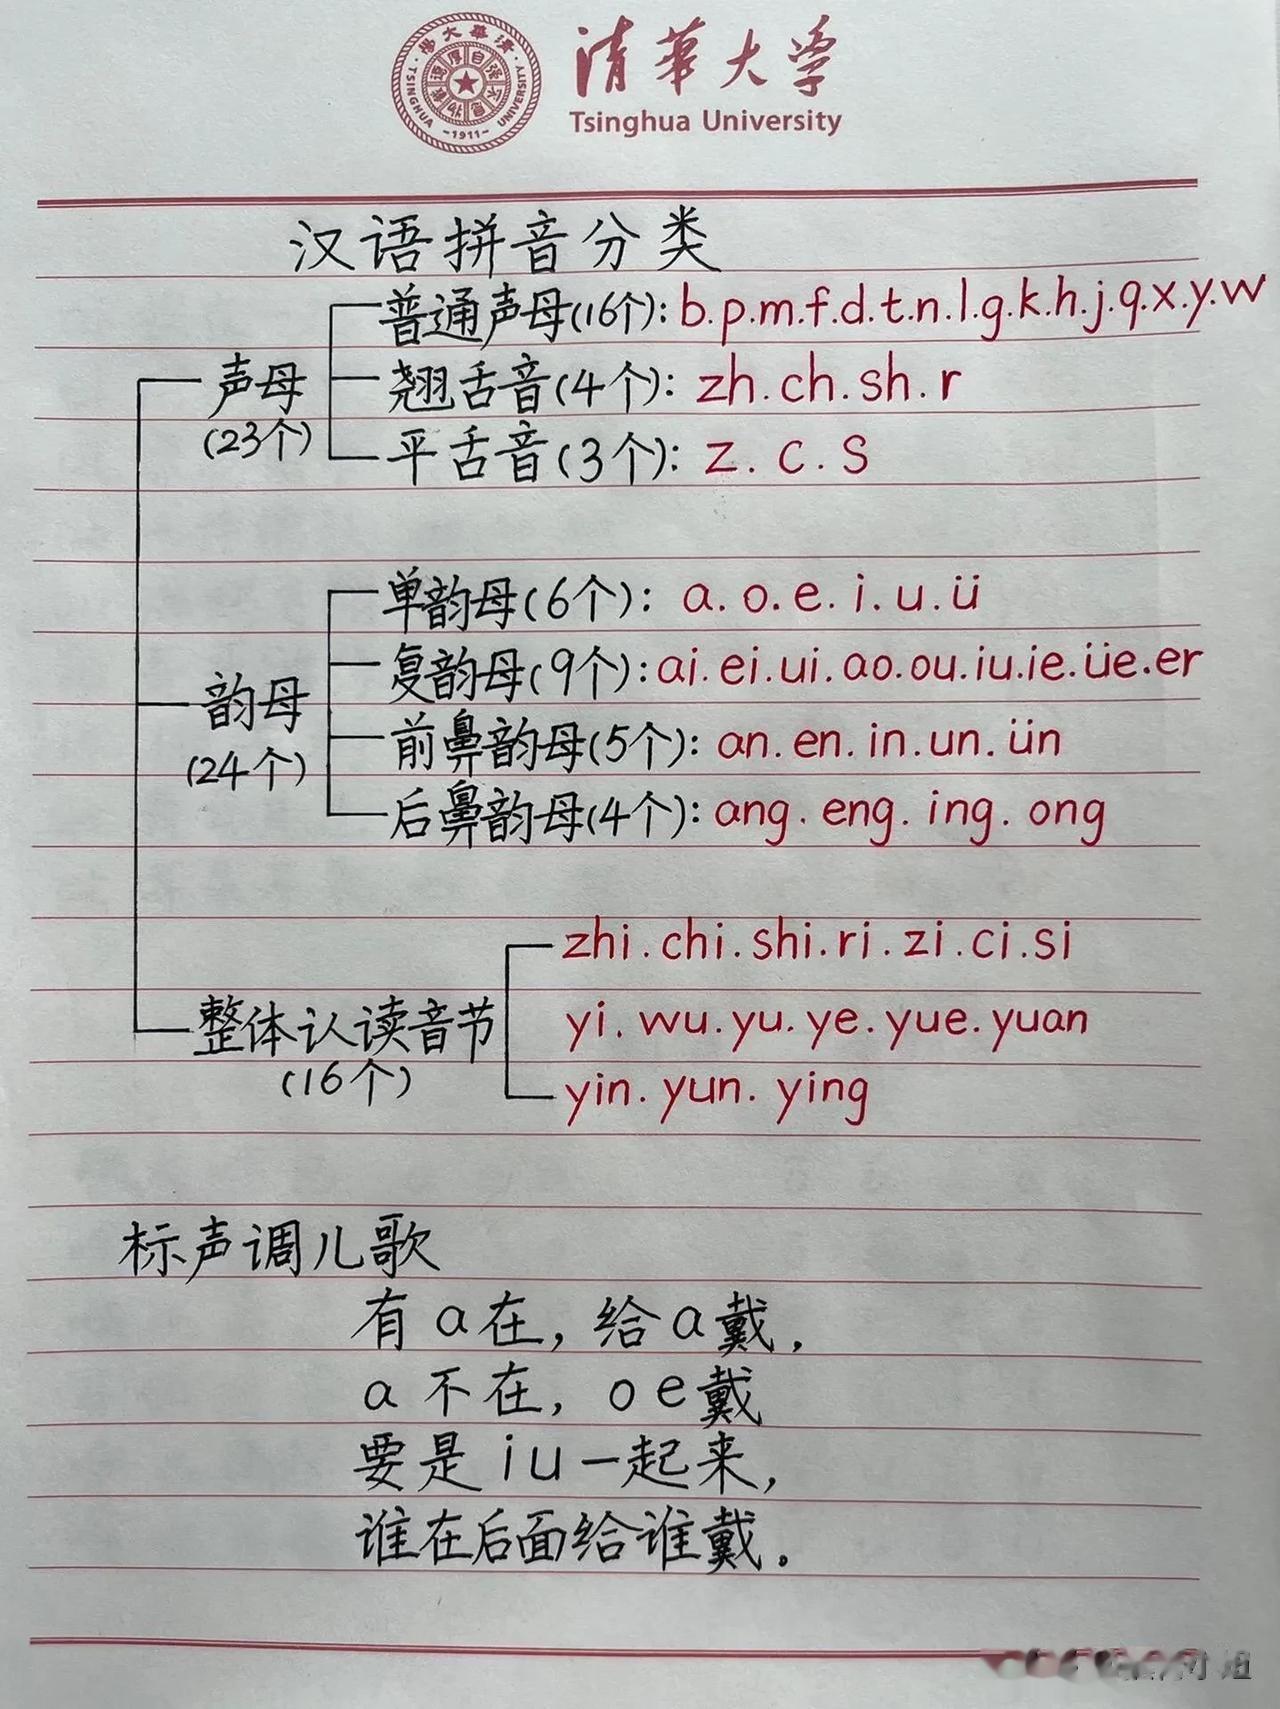 清華大学
Tsinghua University
TSINGHUA UNIVERSITY
-1911-
汉语拼音分类
声母
(23个)
普通声母(16个): b.p.m.f.d.t.n.l.g.k.h.j.q.x.y.w
翘舌音(4个): zh.ch.sh.r
平舌音(3个): z.c.s
韵母
(24个)
单韵母(6个): a.o.e.i.u.ü
复韵母(9个): ai.ei.ui.ao.ou.iu.ie.üe.er
前鼻韵母(5个): an.en.in.un.ün
后鼻韵母(4个): ang.eng.ing.ong
整体认读音节
(16个)
zhi.chi.shi.ri.zi.ci.si
yi.wu.yu.ye.yue.yuan
yin.yun.ying
标声调儿歌
有a在,给a戴,
a不在,oe戴
要是iu一起来,
谁在后面给谁戴。